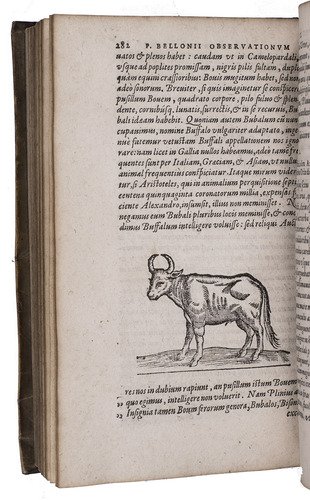 282 P. BELLONII OBSERVATIONVM
uatos & plenos habet: caudam vt in Camelopardal
vsque ad poplites promissam, nigris pilis sultam, dupl
quàm equum crassioribus: Bouis mugitum habet, sed no
adeò sonorum. Breuiter, si quis imaginetur se conspicere
pusillum Bouem, quadrato corpore, pilo fuluo & splen
dente, cornibusq́, lunatis, surrectis, & in se recuruis, Bu
bali ideam habebit. Quoniam autem Bubalum cū no
cupauimus, nomine Buffalo vulgariter adaptato, inge
nuè fatemur vetustam Bufali appellationem nos igno
rare: nam licet in Gallia nullos habeamus, adeò tamen fre
quentes sunt per Italiam, Græciam, & Asiam, vt nullum
animal frequentius conspiciatur. Itaque mirum videre
tur, si Aristoteles, qui in animalium perquisitione sept
centena quinquaginta coronatorum millia, expensas f
ciente Alexandro, insumsit, illius non meminisset. N
negamus eum Bubali pluribus locis meminisse, & con
dimus Buffalum intelligere voluisse: sed reliqui Auc
res nos in dubium rapiunt, an pusillum istum Bouem
quo egimus, intelligere non voluerit. Nam Plinius
Insignia tamen Boum ferorum genera, Bubalos, Bison
exce